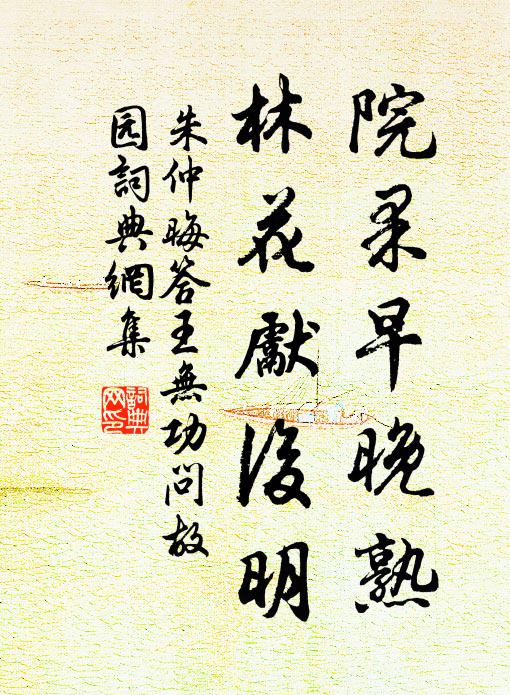 院果早晚熟
林花獻後明
朱仲晦答王無功問故
园詞典網集
詞典
网印